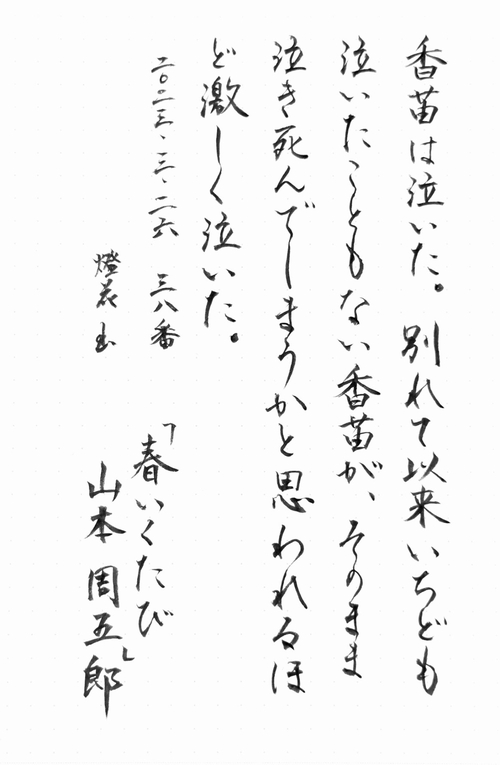 香苗は泣いた。別れて以来いちども
泣いたこともない香苗が、そのまま
泣き死んでしまうかと思われるほ
ど激しく泣いた。
二〇二三、三、二六 三八番
燈花
「春いくたび」
山本周五郎